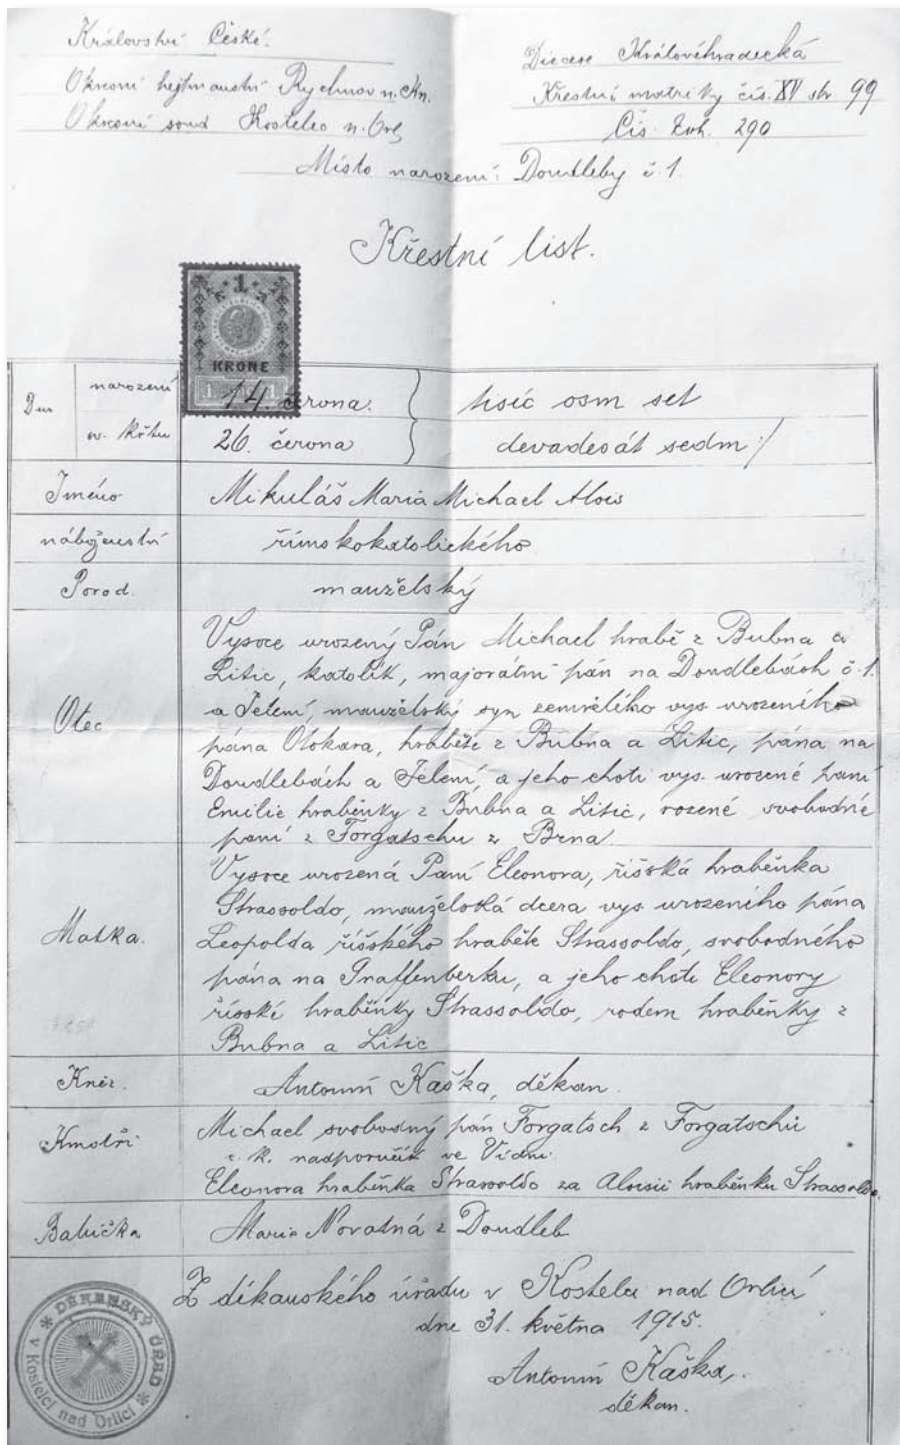 Království České.
Okresní hejtmanství Rychnov n. Kn.
Okresní soud Kostelec n. Orl
Diecese Královéhradecká
Křestní matriky čís. XV str. 99
Čís. Exh. 290
Místo narození: Doudleby č. 1.
Křestní list.
1
KRONE
1 1
Dnu narození 14. června. tisíc osm set
sv. křtu 26. června devadesát sedm :/
Jméno Mikuláš Maria Michael Alois
náboženství římskokatolického
Porod. manželský
Otec
Vysoce urozený Pán Michael hrabě z Bubna a
Litic, katolík, majorátní pán na Doudlebách č. 1.
a Jelení, manželský syn zemřelého vys. urozeného
pána Otokara, hraběte z Bubna a Litic, pána na
Doudlebách a Jelení, a jeho choti vys. urozené paní
Emilie hraběnky z Bubna a Litic, rozené svobodné
paní z Forgatschu z Brna
Matka.
Vysoce urozená Paní Eleonora, říšská hraběnka
Strassoldo, manželská dcera vys. urozeného pána
Leopolda říšského hraběte Strassoldo, svobodného
pána na Graffenberku, a jeho choti Eleonory
říšské hraběnky Strassoldo, rodem hraběnky z
Bubna a Litic
Kněz. Antonín Kaška, děkan.
Kmotři
Michael svobodný pán Forgatsch z Forgatschů
c. k. nadporučík ve Vídni.
Eleonora hraběnka Strassoldo za Aloisii hraběnku Strassoldo.
Babička Marie Novotná z Doudleb
Z děkanského úřadu v Kostelci nad Orlicí
dne 31. května 1915.
Antonín Kaška,
děkan.
* DĚKANSKÝ ÚŘAD *
v Kostelci nad Orlicí